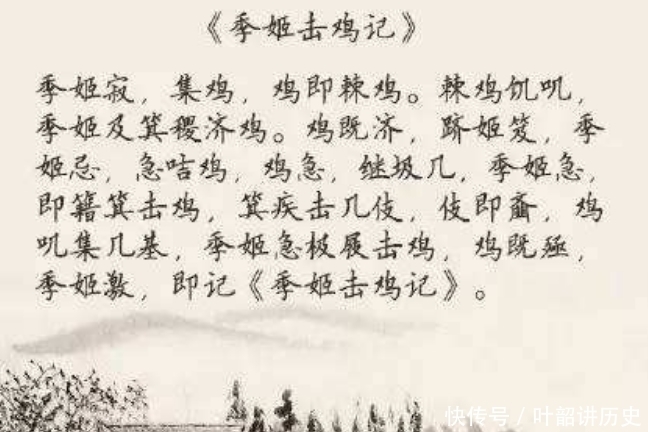 《季姬击鸡记》
季姬寂，集鸡，鸡即棘鸡。棘鸡饥叽，
季姬及箕稷济鸡。鸡既济，跻姬笈，季
姬忌，急咭鸡，鸡急，继圾几，季姬急，
即籍箕击鸡，箕疾击几伎，伎即齑，鸡
叽集几基，季姬急极屐击鸡，鸡既殛，
季姬激，即记《季姬击鸡记》。
快传号／叶韶讲历史